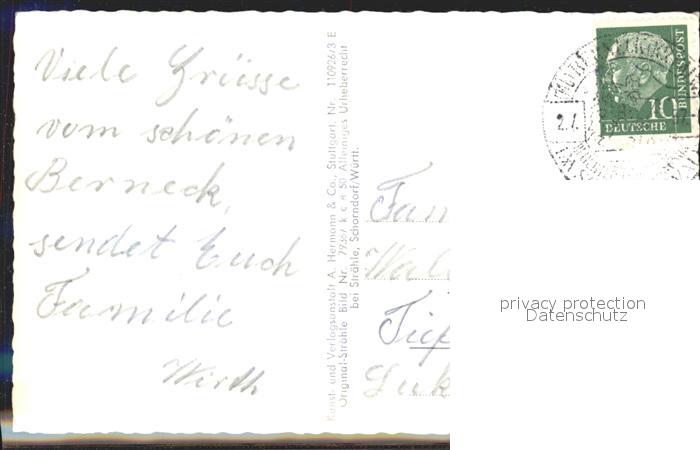 Viele Grüsse
vom schönen
Berneck,
sendet Euch
Familie
Wirth
Kunst- und Verlagsanstalt A. Hermann & Co., Stuttgart. Nr. 110926/3 E
Original-Strähle Bild Nr. 79367 k c R 50 Alleiniges Urheberrecht
bei Strähle, Schorndorf/Württ.
DEUTSCHE
BUNDESPOST
10
Fam
Tief
privacy protection
Datenschutz